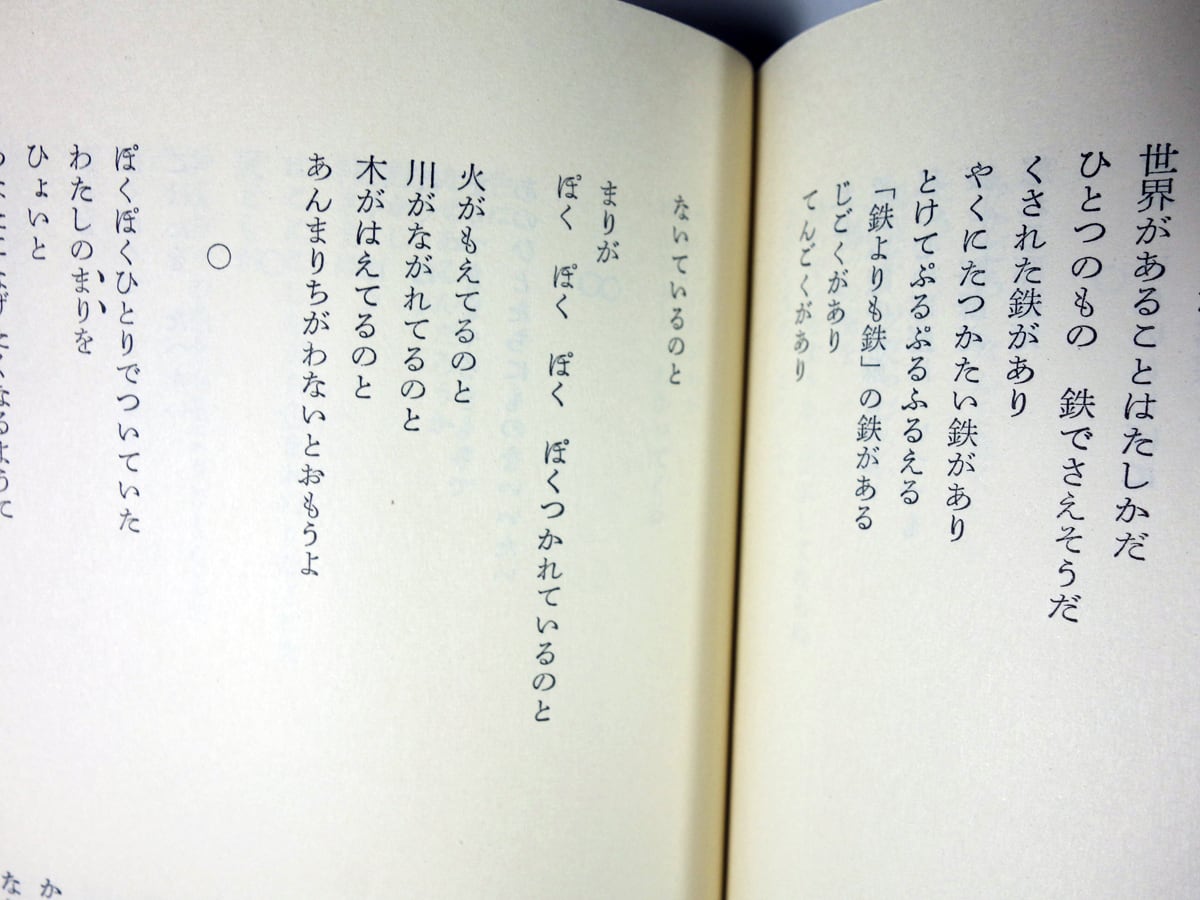 世界があることはたしかだ
ひとつのもの　鉄でさえそうだ
くされた鉄があり
やくにたつかたい鉄があり
とけてぷるぷるふるえる
「鉄よりも鉄」の鉄がある
じごくがあり
てんごくがあり
ないているのと
まりが
ぽく　ぽく　ぽく　ぽくつかれているのと
火がもえてるのと
川がながれてるのと
木がはえてるのと
あんまりちがわないとおもうよ
○
ぽくぽくひとりでついていた
わたしのまりを
ひょいと
か
な